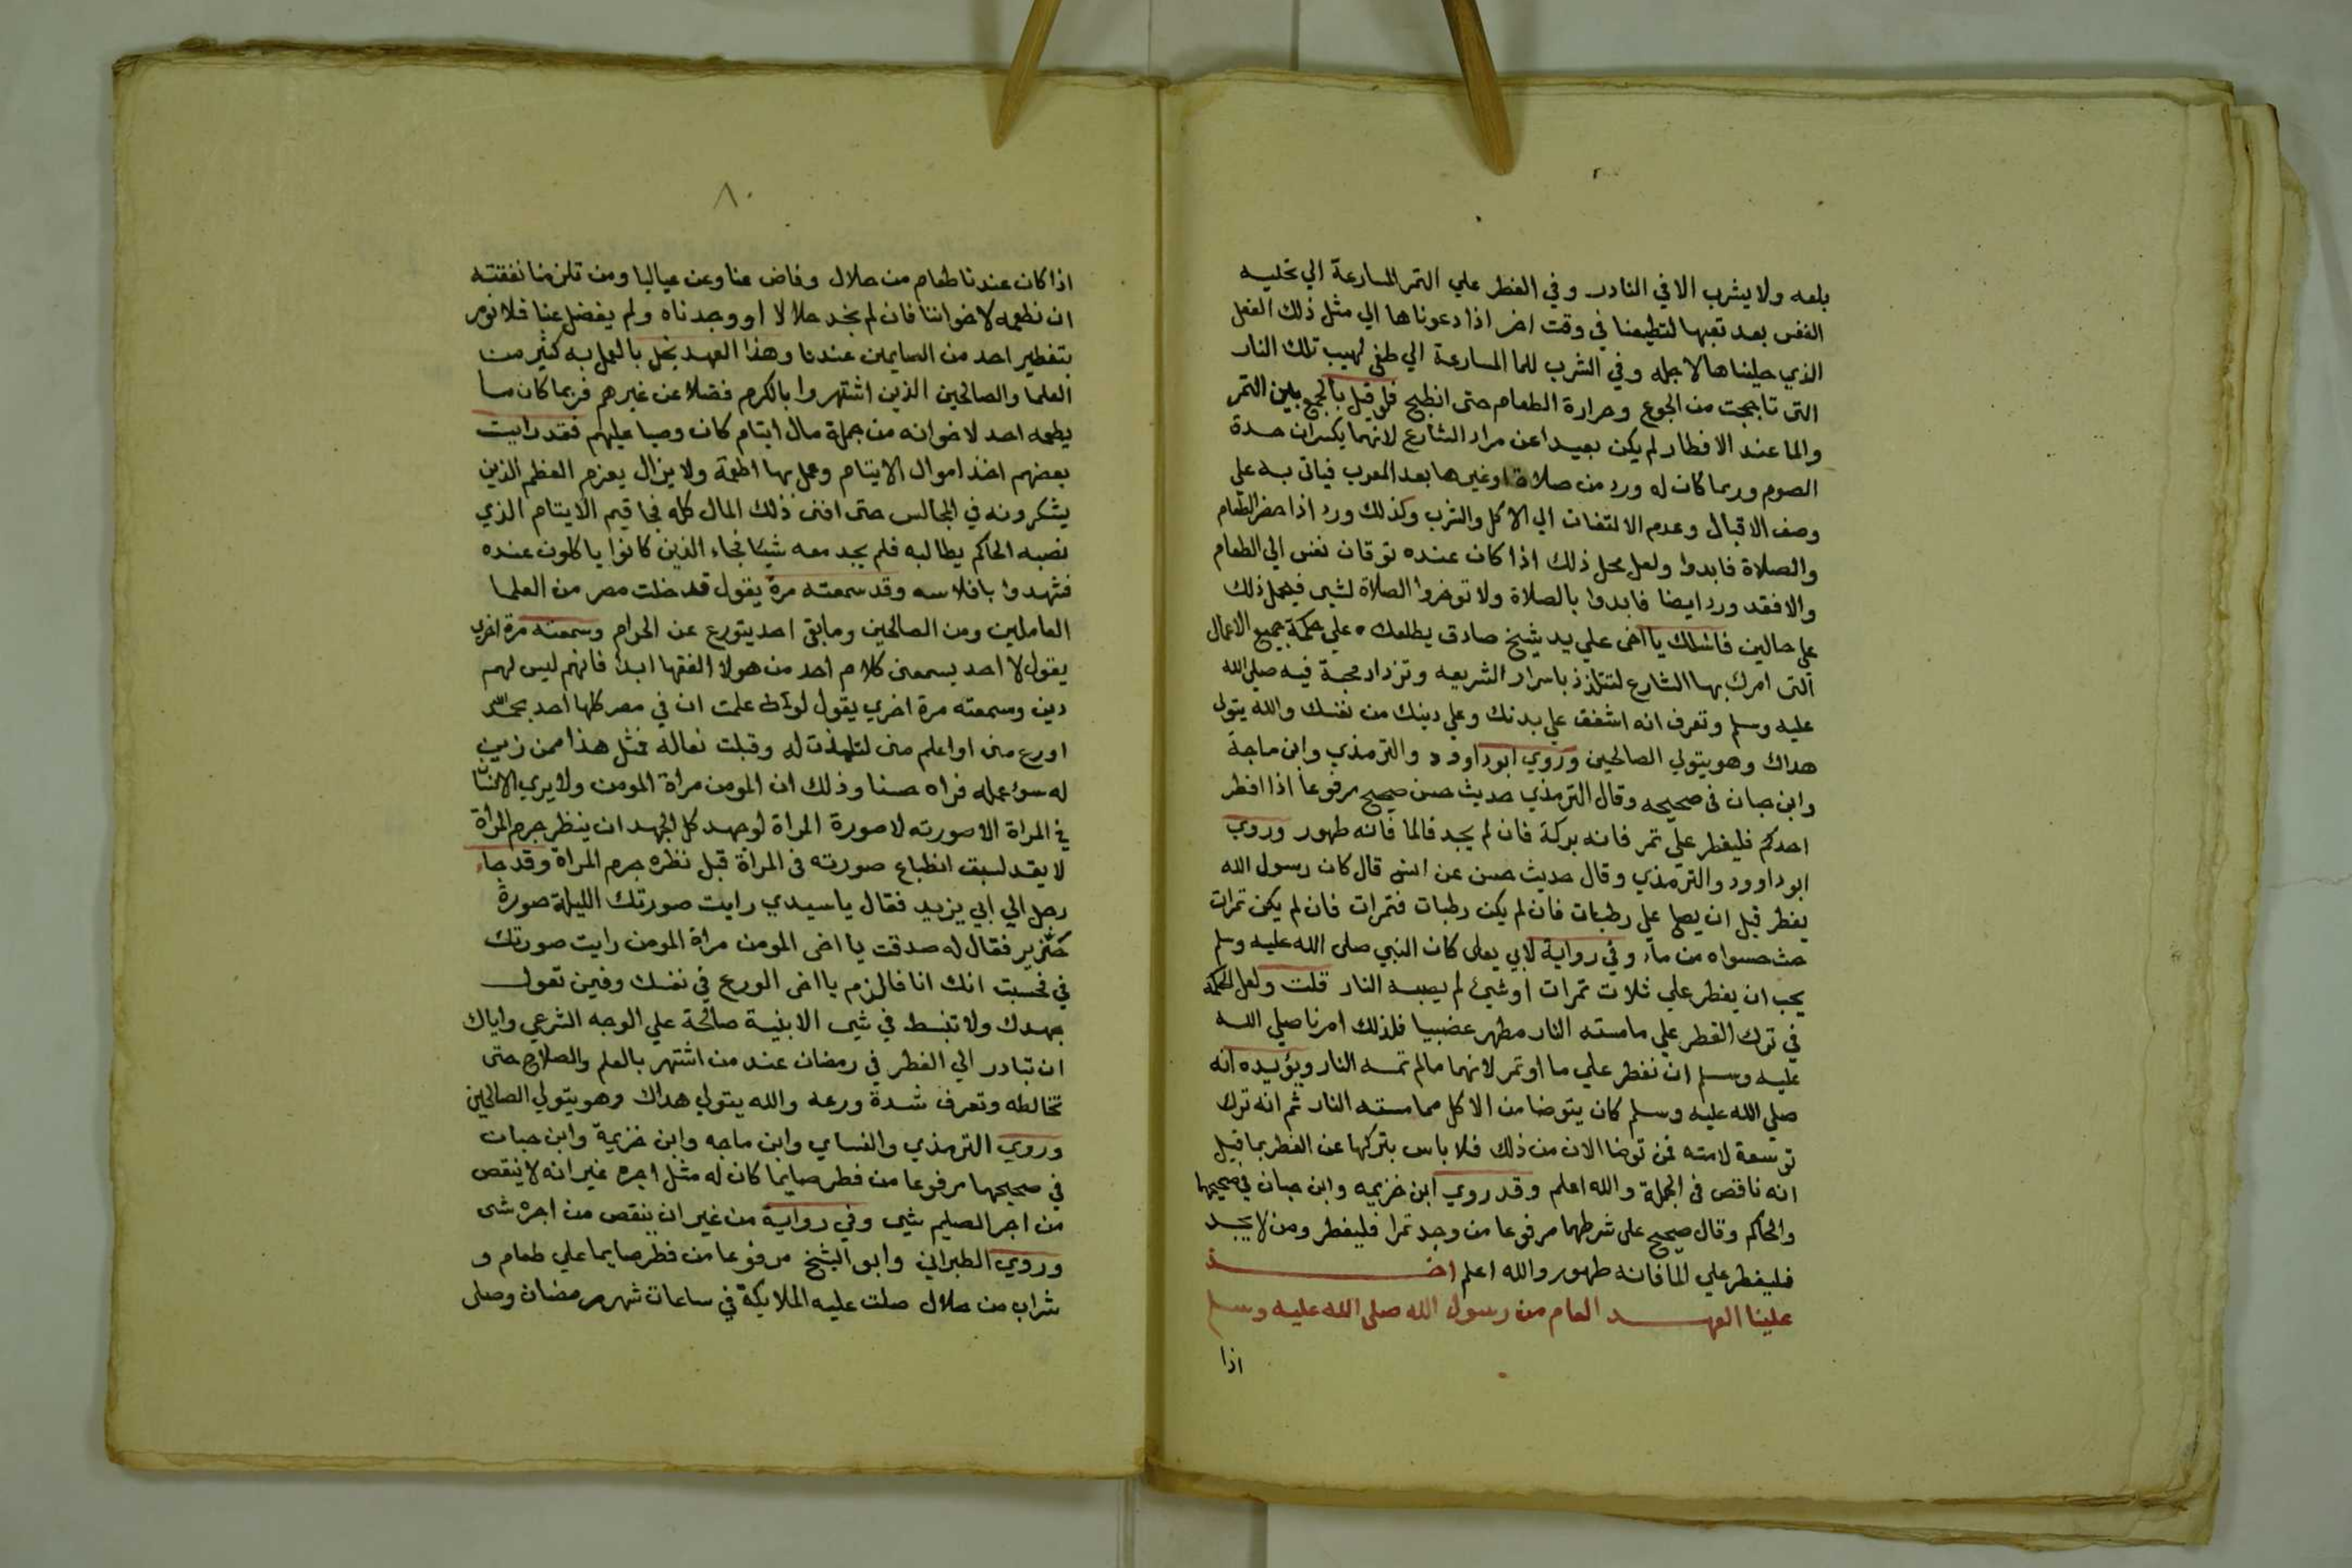 بلعه ولا يشرب الا في النادر وفي الفطر علي التمر المسارعة الي تحليه
النفس بعد تعبها لتطيعنا في وقت اخر اذا دعوناها الي مثل ذلك الفعل
الذي حليناها لاجله وفي الشرب للما المسارعة الي طفي لهيب تلك النار
التي تاججت من الجوع وحرارة الطعام حتى انطبخ فلو قيل بالجمع بين التمر
والما عند الافطار لم يكن بعيدا عن مراد الشارع لانهما يكسران حدة
الصوم وربما كان له ورد من صلاة او غيرها بعد المغرب فياتي به علي
وصف الاقبال وعدم الالتفات الي الاكل والشرب وكذلك ورد اذا حضر الطعام
والصلاة فابدوا ولعل محل ذلك اذا كان عنده توقان نفس الي الطعام
والا فقد ورد ايضا فابدوا بالصلاة ولا توخروا الصلاة لشي فيحمل ذلك
علي حالين فاسلك يا اخي علي يد شيخ صادق يطلعك علي حكمة جميع الاعمال
التي امرك بها الشارع لتتلذذ باسرار الشريعه وتزداد محبة فيه صلي الله
عليه وسلم وتعرف انه اشفق علي بدنك وعلي دينك من نفسك والله يتولى
هداك وهو يتولي الصالحين وروي ابو داوود والترمذي وابن ماجة
وابن حبان في صحيحه وقال الترمذي حديث حسن صحيح مرفوعا اذا افطر
احدكم فليفطر علي تمر فانه بركة فان لم يجد فالما فانه طهور وروي
ابو داوود والترمذي وقال حديث حسن عن انس قال كان رسول الله
يفطر قبل ان يصلي علي رطبات فان لم يكن رطبات فتمرات فان لم يكن تمرات
حسا حسواه من ماء وفي رواية لابي يعلى كان النبي صلى الله عليه وسلم
يحب ان يفطر علي ثلاث تمرات او شيئ لم يصبه النار قلت ولعل الحكمة
في ترك الفطر علي ما مسته النار مظهر غضبيا فلذلك امرنا صلي الله
عليه وسلم ان نفطر علي ما او تمر لانهما مالم تمسه النار ويؤيده انه
صلي الله عليه وسلم كان يتوضا من الاكل مما مسته النار ثم انه ترك
توسعة لامته فمن توضا الان من ذلك فلا باس بتركها عن الفطر بما قيل
انه ناقص في الجملة والله اعلم وقد روي ابن خزيمه وابن حبان في صحيحيهما
والحاكم وقال صحيح على شرطهما مرفوعا من وجد تمرا فليفطر ومن لا يجد
فليفطر علي الما فانه طهور والله اعلم اخذ
علينا العهد العام من رسول الله صلى الله عليه وسلم
اذا
٨٠
اذا كان عندنا طعام من حلال وفاض عنا وعن عيالنا ومن تلزمنا نفقته
ان نطعمه لاخواننا فان لم نجد حلالا او وجدناه ولم يفضل عنا فلا نومر
بتفطير احد من الصايمين عندنا وهذا العهد يخل بالعمل به كثير من
العلما والصالحين الذين اشتهروا بالكرم فضلا عن غيرهم فربما كان ما
يطعمه احد لاخوانه من جملة مال ايتام كان وصيا عليهم فقد رايت
بعضهم اخذ اموال الايتام وعمل بها اطعمة ولا يزال يعزم الفظم الذين
يشكرونه في المجالس حتى افنى ذلك المال كله فجا قيم الايتام الذي
نصبه الحاكم يطالبه فلم يجد معه شيئا فجاء الذين كانوا ياكلون عنده
فشهدوا بافلاسه وقد سمعته مرة يقول قد خلت مصر من العلما
العاملين ومن الصالحين ومابقى احد يتورع عن الحرام وسمعته مرة اخري
يقول لا احد يسمعنى كلام احد من هولا الفقها ابدا فانهم ليس لهم
دين وسمعته مرة اخري يقول لو علمت ان في مصر كلها احد بحمد الله
اورع منى او اعلم منى لتلمذت له وقبلت نعاله فمثل هذا ممن زين
له سوء عمله فراه حسنا وذلك ان المومن مراة المومن ولا يري الانسان
في المراة الا صورته لا صورة المراة لو جهد كل الجهد ان ينظر جرم المرأة
لا يقد لسبق انطباع صورته في المرأة قبل نظره جرم المراة وقد جاء
رجل الي ابي يزيد فقال يا سيدي رايت صورتك الليلة صورة
خنزير فقال له صدقت يا اخى المومن مراة المومن رايت صورتك
في فحسبت انك انا فالزم يا اخى الورع في نفسك وفين تعول
جهدك ولا تنبسط في شي الا بنية صالحة علي الوجه الشرعي واياك
ان تبادر الي الفطر في رمضان عند من اشتهر بالعلم والصلاح حتى
تخالطه وتعرف شدة ورعه والله يتولي هداك وهو يتولي الصالحين
وروي الترمذي والنساي وابن ماجه وابن خزيمة وابن حبان
في صحيحهما مرفوعا من فطر صايما كان له مثل اجره غير انه لا ينقص
من اجر الصايم شي وفي رواية من غير ان ينقص من اجره شى
وروي الطبراني وابو الشيخ مرفوعا من فطر صايما علي طعام و
شراب من حلال صلت عليه الملايكة في ساعات شهر رمضان وصلى